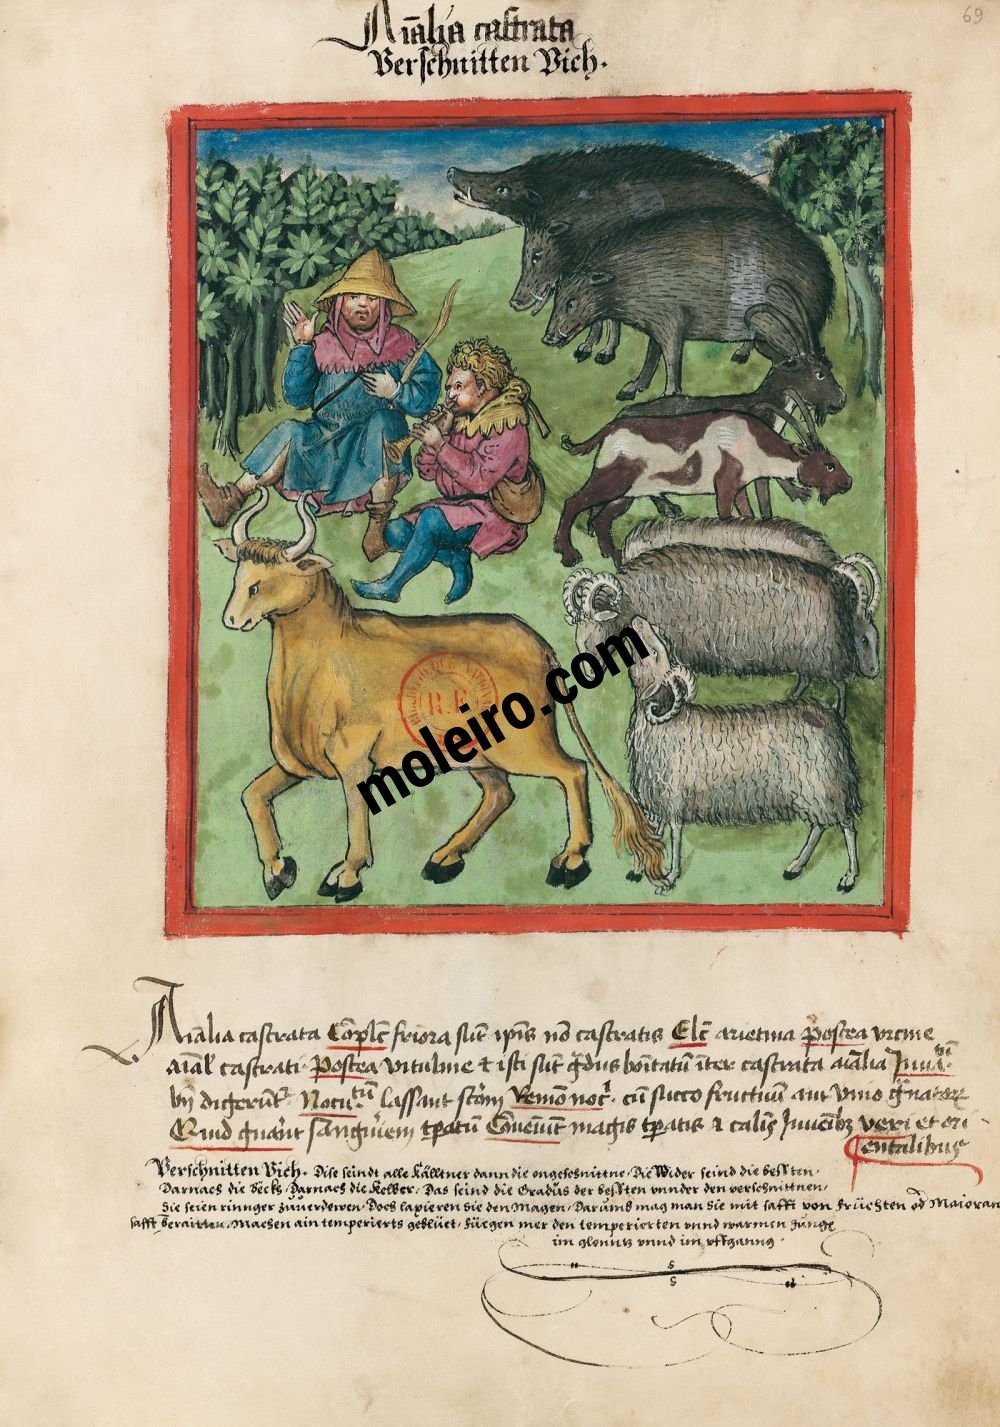 69
Aiālia castrata
Verschnitten Vich.
R.F.
moleiro.com
Aiālia castrata Cōplc̄ friora sūt ip̄is nō castratis Elc̄ arietina Postea vrcine
aiāl castrati Postea vituline et isti sūt gdus bōitatū īter castrata aiālia Juuā.
digerūt Nocu.tū lassant stōm Remo noc. cū succo fructuū aut vino
Quid gn̄ant sangīem tp̄atū Conueniūt magis tp̄atis calis Juuēibz veri et ori-
entalibus
Verschnitten Vich. Dise seindt alle Källtner dann die ongeschnittne. Die Wider seind die bessten.
Darnach die böckh. Darnach die Kelber. Das seind die Gradus der bessten vnnder den verschnittnen.
Sie seien ringer zuuerdewen. Doch laxieren sie den Magen. Darumb mag man sie mit safft von Früchten od Maioran
safft beraitten. Machen ain temperierts geblüet. Füegen mer den temperierten vnnd warmen Junge
im glentz vnnd im vffganng.